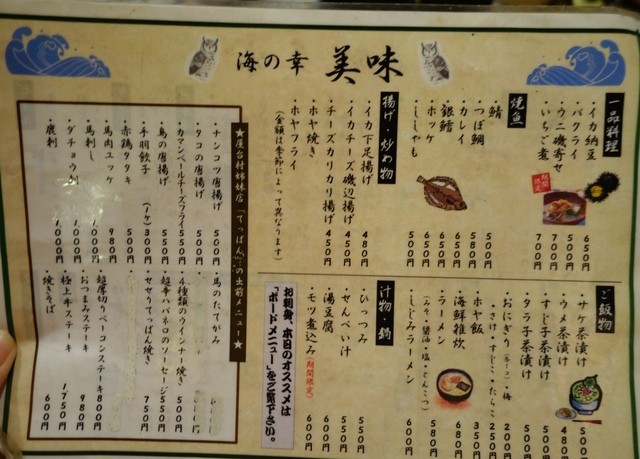 海の幸 美味
一品料理
・イカ納豆 650円
・バクライ 500円
・ウニ磯寄せ 700円
・いちご煮 700円
焼魚
・鯖 500円
・つぼ鯛 580円
・カレイ 650円
・銀鱈 650円
・ホッケ 650円
・ししゃも 500円
揚げ・炒め物
・イカ下足揚げ 480円
・イカチーズ磯辺揚げ 450円
・チーズカリカリ揚げ 450円
・ホヤ焼き
・ホヤフライ
(金額は季節によって異なります)
ご飯物
・サケ茶漬け
・ウメ茶漬け 480円
・すじ子茶漬け 500円
・タラ子茶漬け 500円
・おにぎり ・梅 200円
・さけ・すじこ・たらこ 250円
・ホヤ飯 350円
・海鮮雑炊 680円
・ラーメン 580円
(みそ・醤油・塩・とんこつ)
・しじみラーメン 600円
汁物・鍋
・ひっつみ 550円
・せんべい汁 550円
・湯豆腐 600円
・モツ煮込み(期間限定) 600円
お刺身、本日のオススメは
「ボードメニュー」をご覧下さい。
★屋台村姉妹店「てっぱん」の出前メニュー★
・ナンコツ唐揚げ 500円
・タコの唐揚げ 500円
・カマンベールチーズフライ 550円
・鳥の唐揚げ 500円
・手羽餃子 (1ケ) 300円
・赤鶏タタキ 500円
・馬肉ユッケ 980円
・馬刺し 1,000円
・ダチョウ刺 1,000円
・鹿刺 1,000円
・馬のたてがみ
・4種類のウインナー焼き 500円
・超辛ハバネロのソーセージ 550円
・セセリてっぱん焼き 750円
・超厚切りベーコンステーキ 800円
・おつまみステーキ 980円
・極上牛ステーキ 1,750円
・焼きそば 600円